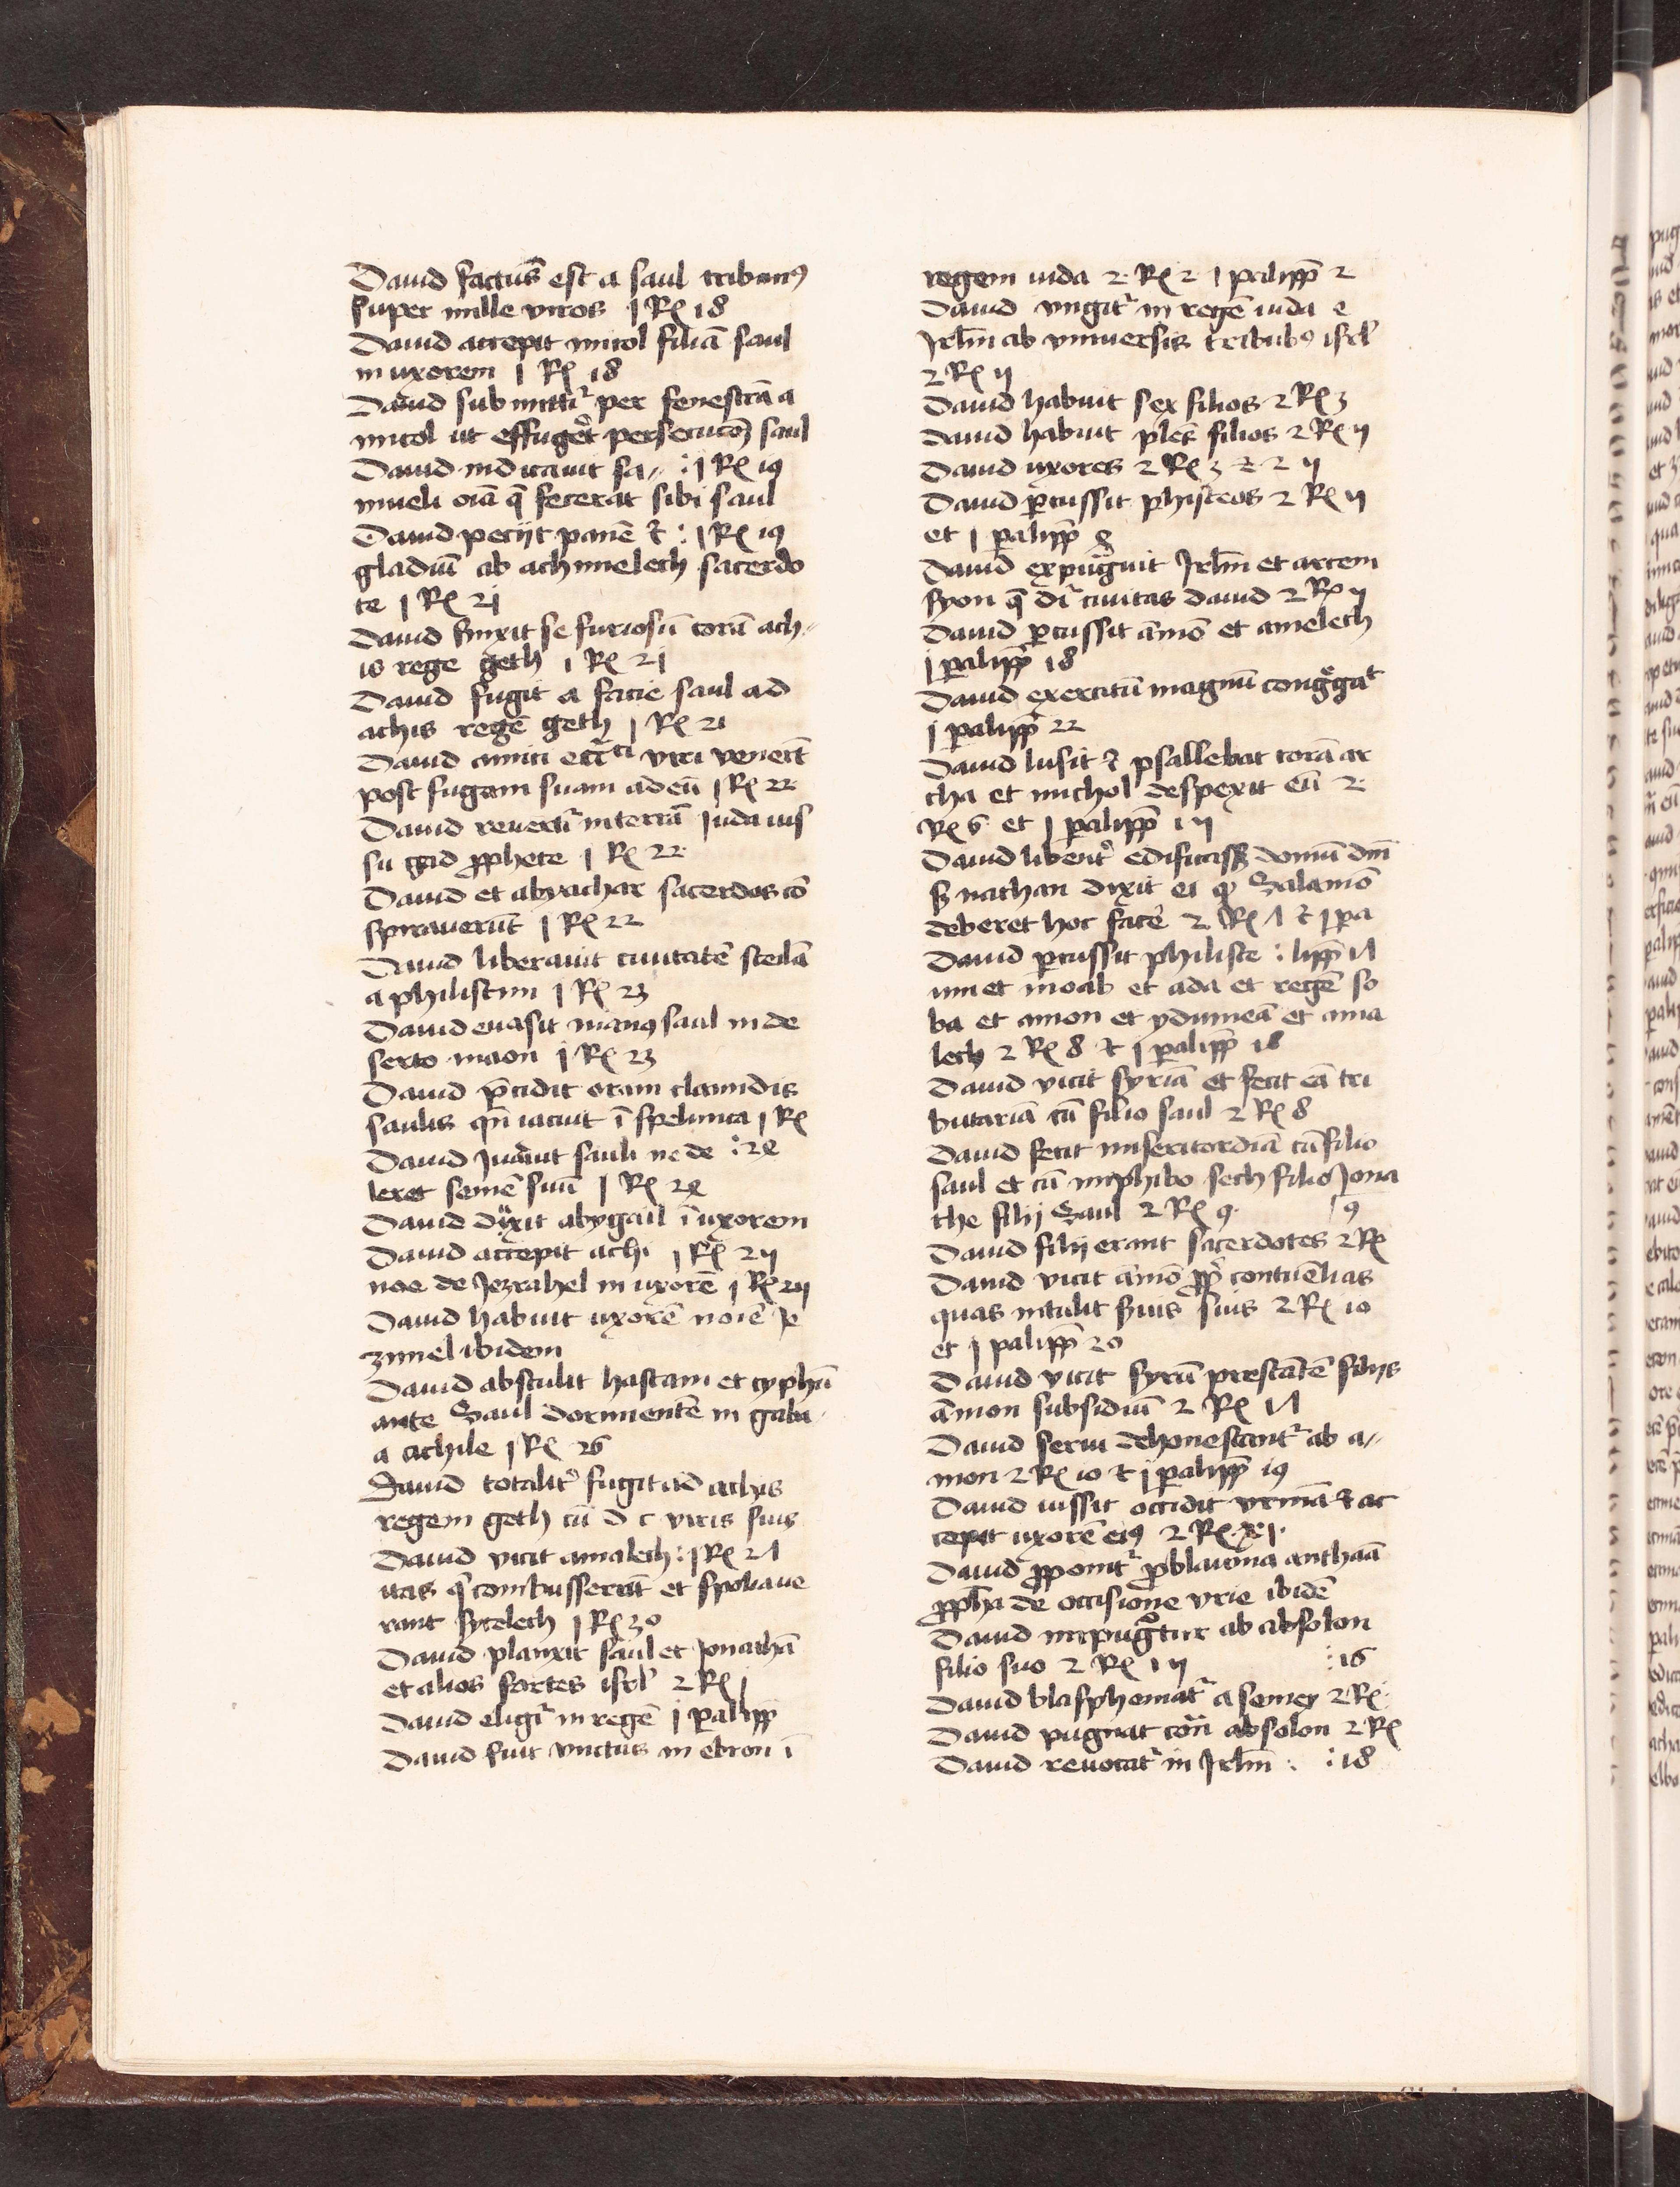 Dauid factus est a saul tribunꝯ
super mille viros 1 Rꝭ 18
Dauid accepit micol filiā saul
in uxorem 1 Rꝭ 18
Dauid submittiᷣ per fenestrā a
micol ut effugeꝛet persecucōꝫ saul
Dauid indicauit sa⸗ : 1 Rꝭ 19
mueli oīa q̄ fecerat sibi saul
Dauid petijt panē ⁊ : 1 Rꝭ 19
gladiū ab achimelech sacerdo
te 1 Rꝭ 21
Dauid finxit se furiosū corā ach⸗
is rege geth 1 Rꝭ 21
Dauid fugit a facie saul ad
achis regē geth 1 Rꝭ 21
Dauid amici viri venerūt
post fugam suam ad eū 1 Rꝭ 22
Dauid reuertiᷣ in terrā Juda ius
su gad ꝓphete 1 Rꝭ 22
Dauid et abyathar sacerdos cō
spirauerūt 1 Rꝭ 22
Dauid liberauit ciuitatē ceilā
a philistim 1 Rꝭ 23
Dauid euasit manꝯ saul in de
serto maon 1 Rꝭ 23
Dauid p̄cidit oram clamidis
saulis qn̄ iacuit ī spelunca 1 Rꝭ
Dauid Jurauit sauli ne de : 24
leret semē suū 1 Rꝭ 24
Dauid duxit abygail ī uxorem
Dauid accepit achi 1 Rꝭ 25
noe de Jezrahel in uxorē 1 Rꝭ 25
Dauid habuit uxorē noīe Je
zimel ibidem
Dauid abstulit hastam et cyphū
ante Saul dormientē in gaba⸗
a achile 1 Rꝭ 26
Dauid totalitᷣ fugit ad achis
regem geth cū d c viris suis
Dauid vicit amalech : 1 Rꝭ 27
itas qꝫ combusserāt et spoliaue
rant sycelech 1 Rꝭ 30
Dauid planxit saul et Jonathā
et alios fortes isrl' 2 Rꝭ 1
Dauid eligiᷣ in regē 1 ꝑalipp̄
Dauid fuit vnctus in ebron ī
regem iuda 2 Rꝭ 2 1 ꝑalipp̄ 2
Dauid vngitᷣ in regē iuda e
Jrl̄m ab vniuersis tribubꝯ isrl'
2 Rꝭ 5
Dauid habuit sex filios 2 Rꝭ 3
Dauid habuit pl̄es filios 2 Rꝭ 5
Dauid uxores 2 Rꝭ 3 ⁊ 2 5
Dauid ꝑcussit phisteos 2 Rꝭ 5
et 1 ꝑalipp̄ 8
Dauid expugnauit Jrl̄m et arcem
syon q̄ dr̄ ciuitas dauid 2 Rꝭ 5
Dauid ꝑcussit āmō et amelech
1 ꝑalipp̄ 18
Dauid exercitū magnū congᷓgat
1 ꝑalipp̄ 22
Dauid lusit ⁊ psallebat corā ar
cha et michol despexit eū 2
Rꝭ 6 et 1 ꝑalipp̄ 15
Dauid libentᷣ edificassꝫ domū dn̄i
sꝫ nathan dixit ei qꝫ Salamō
deberet hoc facē 2 Rꝭ 7 ⁊ 1 ꝑa
Dauid ꝑcussit philiste : lipp̄ 17
um et moab et ada et regē so
ba et amon et ydumeā et ama
lech 2 Rꝭ 8 ⁊ 1 ꝑalipp̄ 18
Dauid vicit syriā et fecit eā tri
butariā cū filio saul 2 Rꝭ 8
Dauid fecit misericordiā cū filio
saul et cū miphibo sech filio Jona
the filij Saul 2 Rꝭ 9
Dauid filij erant sacerdotes 2 Rꝭ | 9
Dauid vicit āmō ꝓpᷣ contūelias
quas intulit ẜuis suis 2 Rꝭ 10
et 1 ꝑalipp̄ 20
Dauid vicit syrū prestātē filijs
āmon subsidiū 2 Rꝭ 17
Dauid serui dehonestantᷣ ab a⸗
mon 2 Rꝭ 10 ⁊ 1 ꝑalipp̄ 19
Dauid iussit occidit vriā ⁊ ac
cepit uxorē eiꝯ 2 Rꝭ xi.
Dauid ꝓponitᷣ ꝓblauma anthāā
ꝓph̄a de occisione vrie ibidē
Dauid inpugᷓtur ab absolon
filio suo 2 Rꝭ 15 : 16
Dauid blasphematᷣ a semey 2 Rꝭ
Dauid pugnat cont̄ absolon 2 Rꝭ
Dauid reuocatᷣ in Jrl̄m : : 18